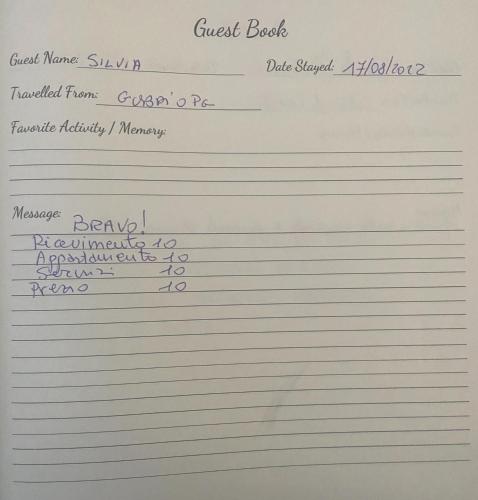 Guest Book
Guest Name: SILVIA Date Stayed: 17/08/2022
Travelled From: GUBBIO PG
Favorite Activity / Memory:
Message: BRAVO!
Ricevimento 10
Appartamento 10
Servizi 10
Prezzo 10